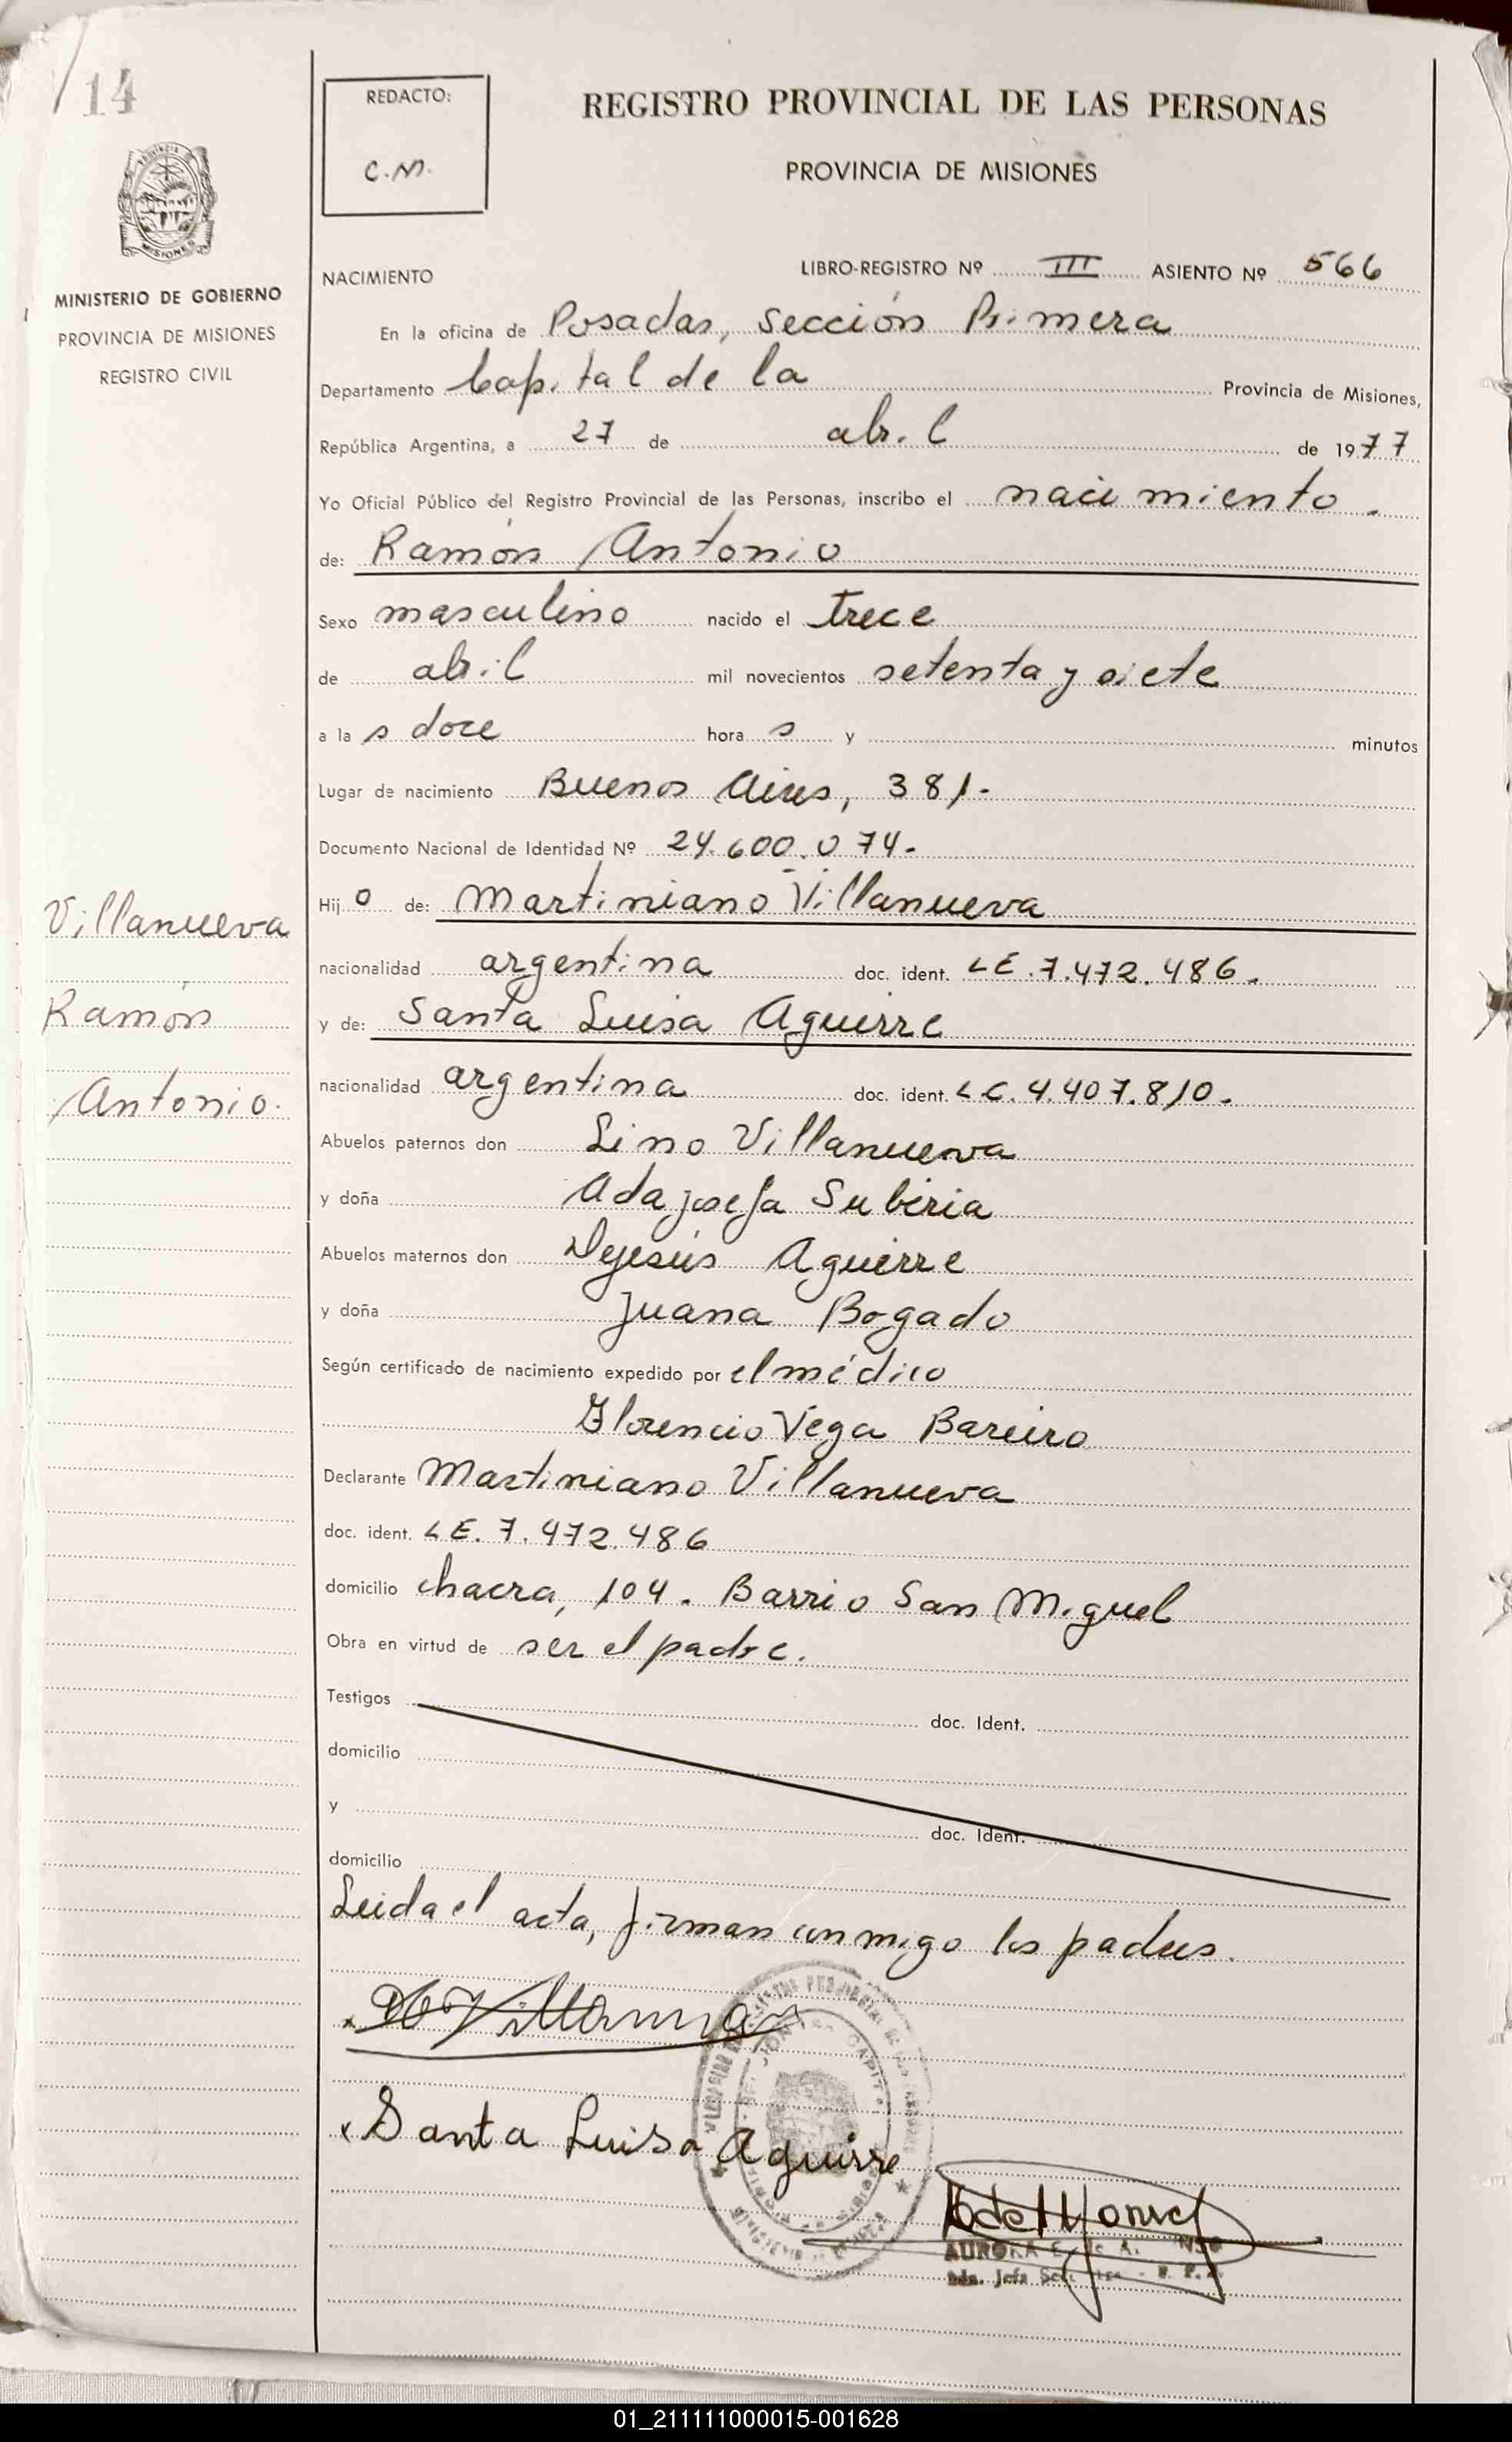 /14
REDACTO:
C.M.
REGISTRO PROVINCIAL DE LAS PERSONAS
PROVINCIA DE MISIONES
MISIONES
MINISTERIO DE GOBIERNO
PROVINCIA DE MISIONES
REGISTRO CIVIL
NACIMIENTO LIBRO-REGISTRO Nº III ASIENTO Nº 566
En la oficina de Posadas, Sección Primera
Departamento Capital de la Provincia de Misiones,
República Argentina, a 27 de abril de 1977
Yo Oficial Público del Registro Provincial de las Personas, inscribo el nacimiento.
de: Ramón Antonio
Sexo masculino nacido el trece
de abril mil novecientos setenta y siete
a la s doce hora s y minutos
Lugar de nacimiento Buenos Aires, 381.
Documento Nacional de Identidad Nº 24.600.074.
Hij o de: Martiniano Villanueva
nacionalidad argentina doc. ident. LE.7.472.486.
y de: Santa Luisa Aguirre
nacionalidad argentina doc. ident. L.C. 4.407.810.
Abuelos paternos don Lino Villanueva
y doña Ada Josefa Subiria
Abuelos maternos don Dejesús Aguirre
y doña Juana Bogado
Según certificado de nacimiento expedido por el médico
Florencio Vega Bareiro
Declarante Martiniano Villanueva
doc. ident. LE. 7.472.486
domicilio chacra, 104. Barrio San Miguel
Obra en virtud de ser el padre.
Testigos doc. Ident.
domicilio
y doc. Ident.
domicilio
Leida el acta, firman conmigo los padres.
Santa Luisa Aguirre
AURORA
Villanueva
Ramón
Antonio.
01_211111000015-001628